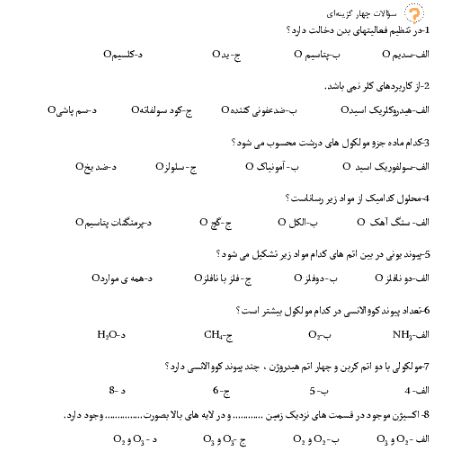 سؤالات چهار گزینه‌ای
1-در تنظیم فعالیتهای بدن دخالت دارد؟
الف-سدیم O ب-پتاسیم O ج- ید O د-کلسیم O
2-از کاربردهای کلر نمی باشد.
الف-هیدروکلریک اسید O ب-ضدعفونی کننده O ج-کود سولفاته O د-سم پاشی O
3-کدام ماده جزو مولکول های درشت محسوب می شود؟
الف-سولفوریک اسید O ب- آمونیاک O ج- سلولز O د-ضد یخ O
4-محلول کدامیک از مواد زیر رساناست؟
الف- سنگ آهک O ب-الکل O ج-گچ O د-پرمنگنات پتاسیم O
5-پیوند یونی در بین اتم های کدام مواد زیر تشکیل می شود؟
الف-دو نافلز O ب-دوفلز O ج- فلز با نافلز O د-همه ی موارد O
6-تعداد پیوند کووالانسی در کدام مولکول بیشتر است؟
الف-NH₃ ب-O₂ ج-CH₄ د-H₂O
7-مولکولی با دو اتم کربن و چهار اتم هیدروژن ، چند پیوند کووالانسی دارد؟
الف- 4 ب- 5 ج- 6 د- 8
8- اکسیژن موجود در قسمت های نزدیک زمین ............ و در لایه های بالا بصورت............... وجود دارد.
الف -O₂ و O₃ ب- O₂ و O₂ ج -O₃ و O₃ د - O₃ و O₂